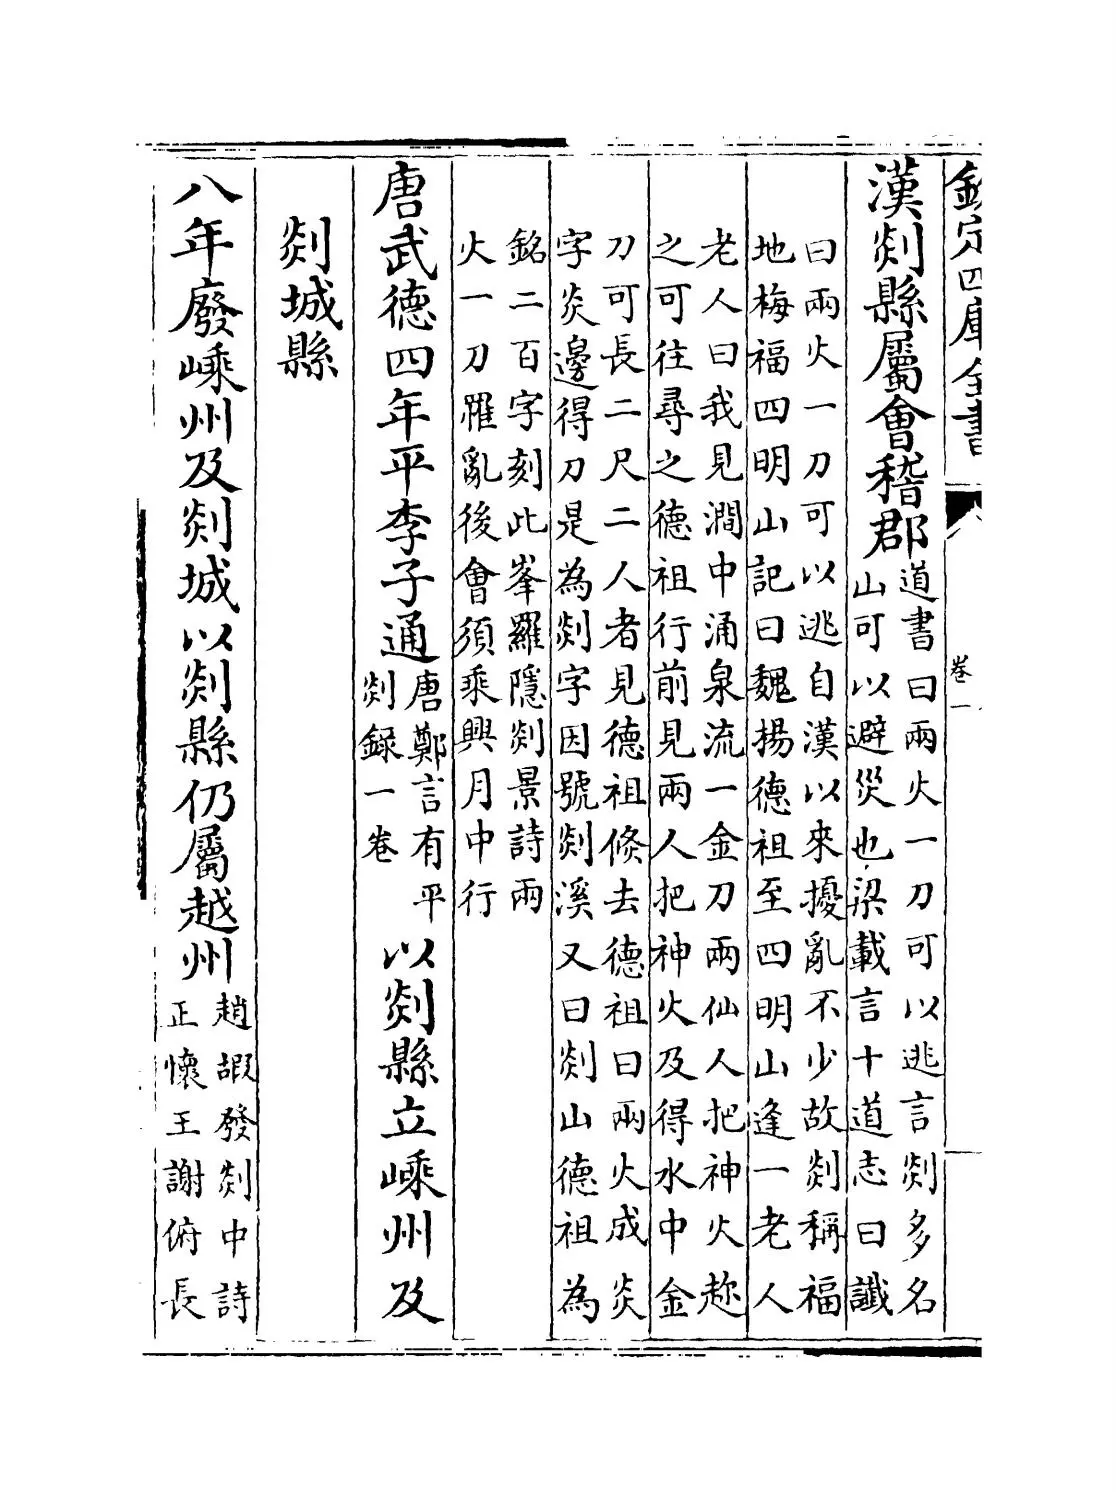 欽定四庫全書
卷一
漢剡縣屬會稽郡
道書曰兩火一刀可以逃言剡多名
山可以避災也梁載言十道志曰讖
曰兩火一刀可以逃自漢以來擾亂不少故剡稱福
地梅福四明山記曰魏揚德祖至四明山逢一老人
老人曰我見澗中涌泉流一金刀兩仙人把神火趂
之可往尋之德祖行前見兩人把神火及得水中金
刀可長二尺二人者見德祖倐去德祖曰兩火成炎
字炎邊得刀是為剡字因號剡溪又曰剡山德祖為
銘二百字刻此峯羅隱剡景詩兩
火一刀罹亂後會須乘興月中行
唐武德四年平李子通
唐鄭言有平
剡録一卷
以剡縣立嵊州及
剡城縣
八年廢嵊州及剡城以剡縣仍屬越州
趙嘏發剡中詩
正懷王謝俯長